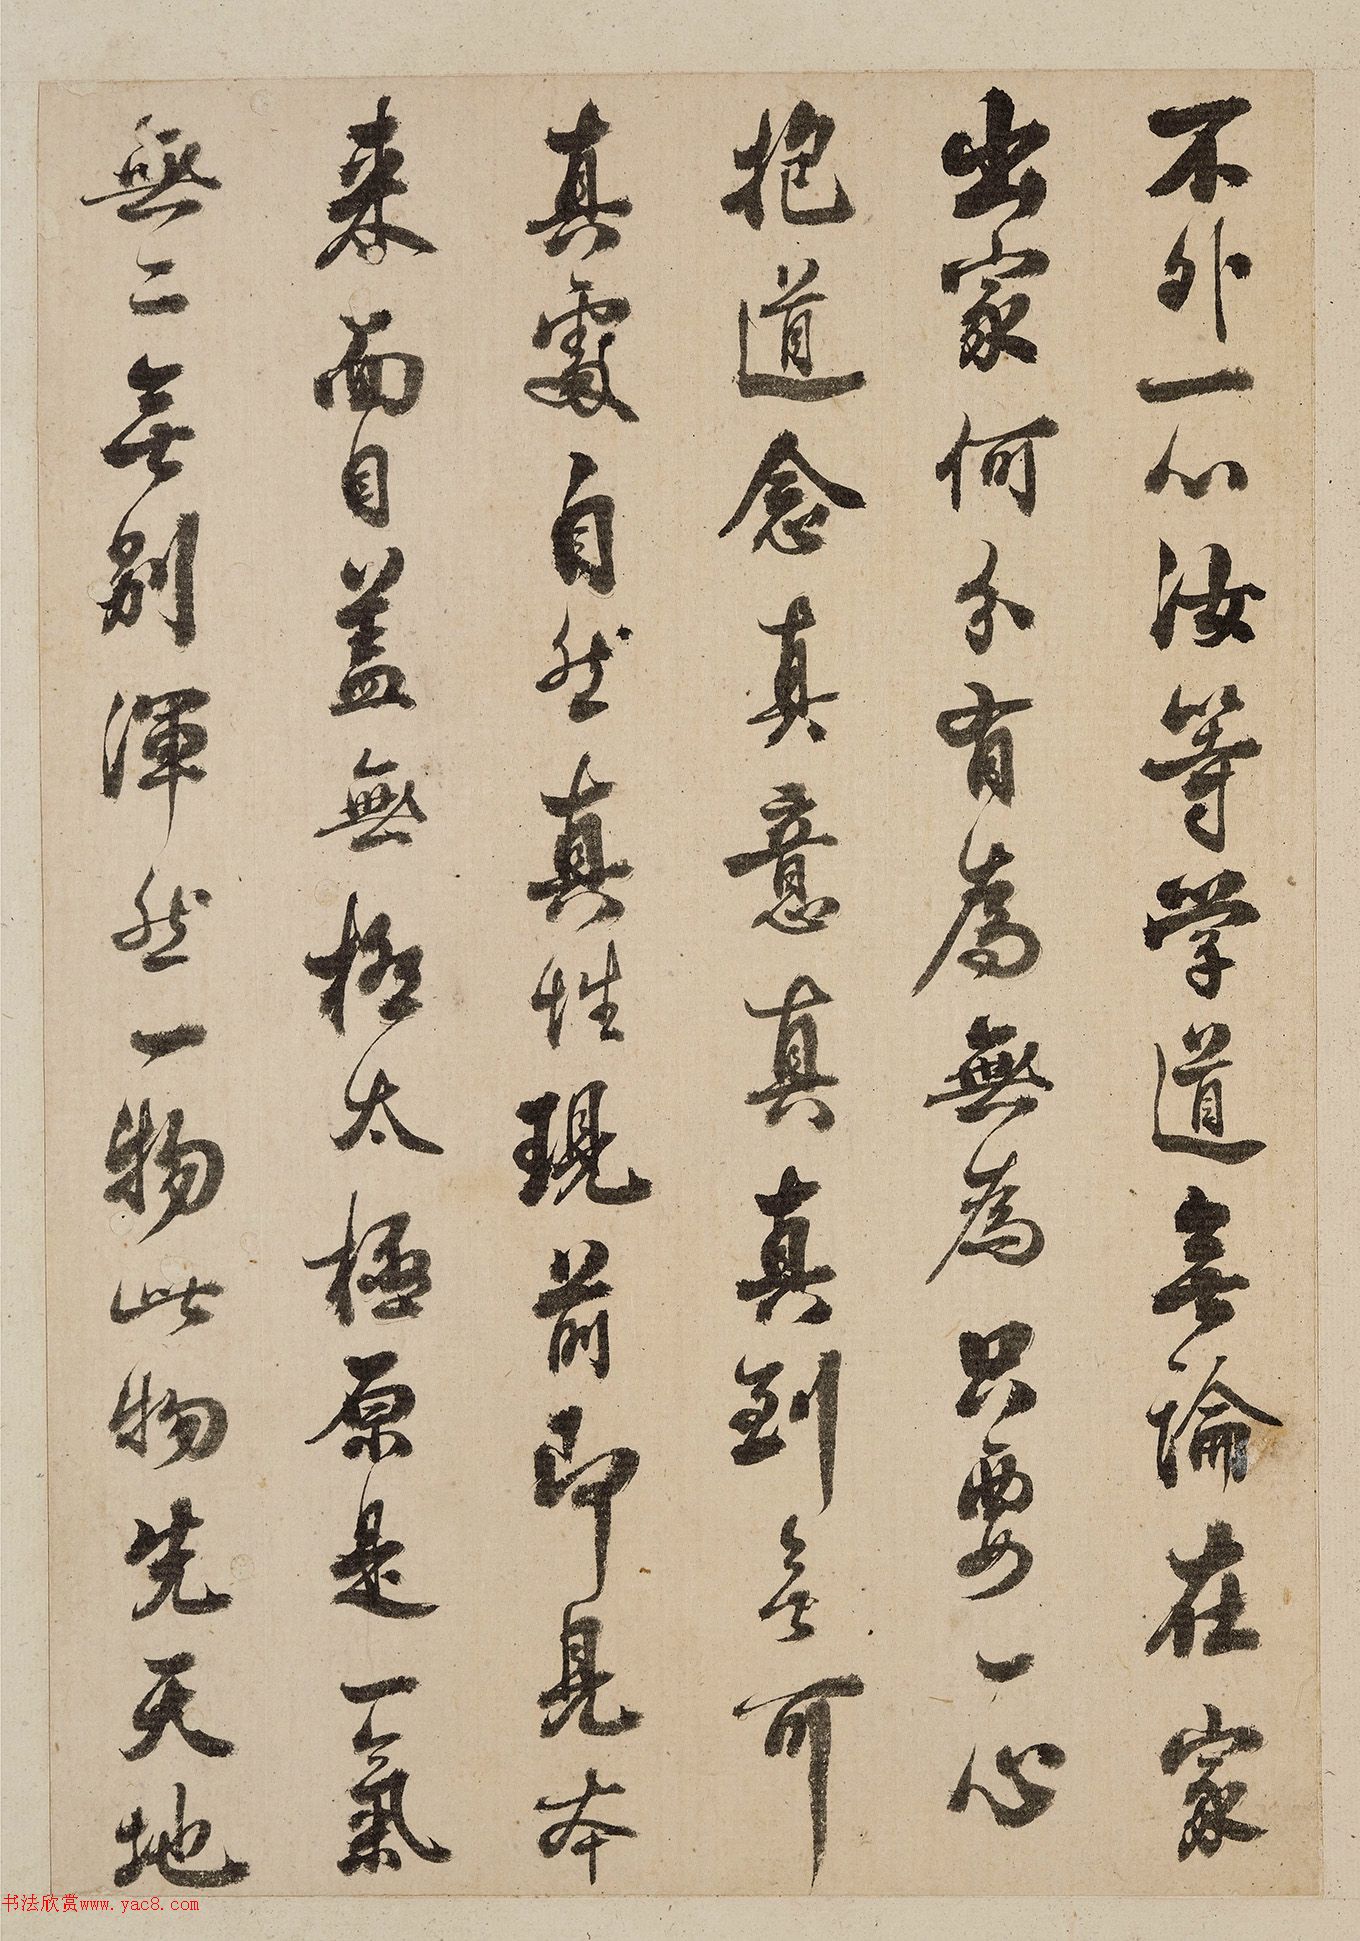 不外一心汝等学道無論在家
出家何分有為無為只要一心
抱道念真意真真到無可
真處自然真性現前即見本
来面目盖無極太極原是一氣
無二無别渾然一物此物先天地
书法欣赏www.yac8.com